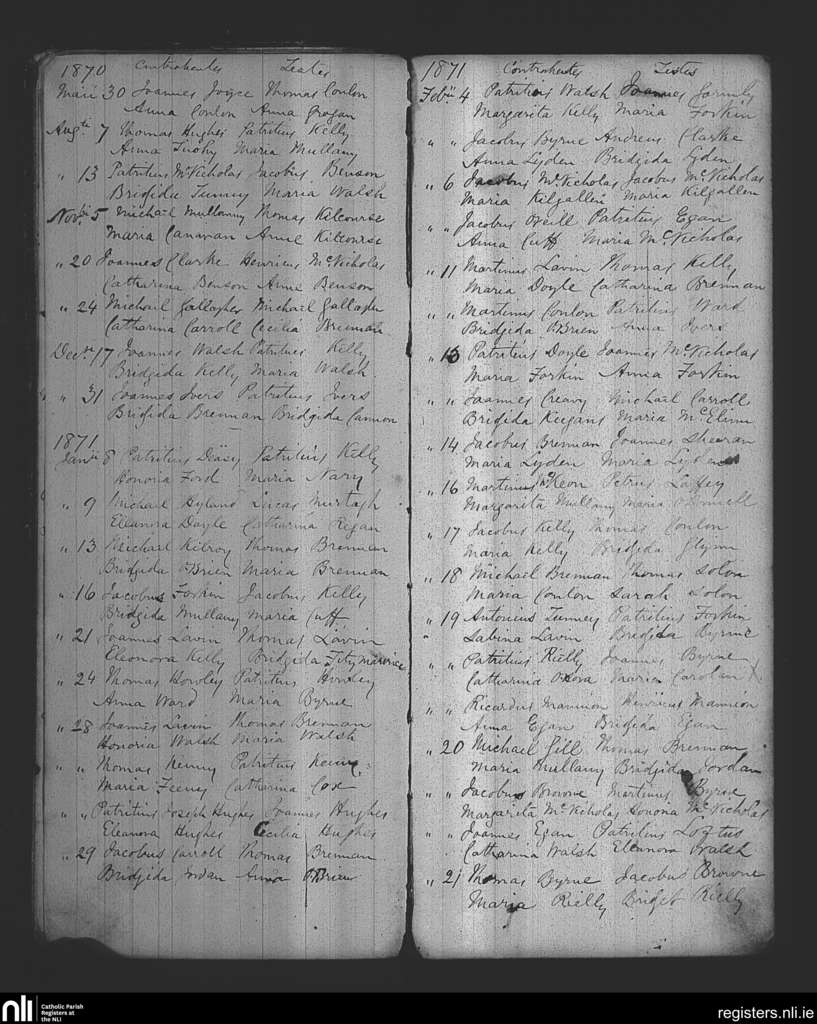 1870 Contrahentes Testes
30 Joannes Joyce Thomas Conlon
Anna Conlon Anna Grogan
Augti 7 Thomas Hughes Patritius Kelly
Anna Tuohy Maria Mullany
" 13 Patritius McNicholas Jacobus Benson
Brigida Tunney Maria Walsh
Novbr 5 Michael Mullanny Thomas Kilcourse
Maria Canavan Anne Kilcourse
" 20 Joannes Clarke Henricus McNicholas
Catharina Benson Anne Benson
" 24 Michael Gallagher Michael Gallagher
Catharina Carroll Cecilia Brennan
Decr 17 Joannes Walsh Patritius Kelly
Bridgida Kelly Maria Walsh
" 31 Joannes Ivers Patritius Ivers
Brigida Brennan Bridgida Cannon
1871
Janii 8 Patritius Deasy Patritius Kelly
Honoria Ford Maria Nary
" 9 Michael Hyland Lucas Murtagh
Eleanora Doyle Catharina Regan
" 13 Michael Kilroy Thomas Brennan
Bridgida OBrien Maria Brennan
" 16 Jacobus Forkin Jacobus Kelly
Bridgida Mullany Maria Cuff
" 21 Joannes Lavin Thomas Lavin
Eleonora Kelly Bridgida Fitzmaurice
" 24 Thomas Howley Patritius Howley
Anna Ward Maria Byrne
" 28 Joannes Lavin Thomas Brennan
Honoria Walsh Maria Walsh
" " Thomas Kenny Patritius Kenny
Maria Feeney Catharina Cox
" " Patritius Joseph Hughes Joannes Hughes
Eleanora Hughes Cecilia Hughes
" 29 Jacobus Carroll Thomas Brennan
Bridgida Jordan Anna OBrien
1871 Contrahentes Testes
Febii 4 Patritius Walsh Joannes Gormley
Margarita Kelly Maria Forkin
" " Jacobus Byrne Andreus Clarke
Anna Lyden Bridgida Lyden
" 6 Jacobus McNicholas Jacobus McNicholas
Maria Kilgallen Maria Kilgallen
" " Jacobus Oneill Patritius Egan
Anna Cuff Maria McNicholas
" 11 Martinus Lavin Thomas Kelly
Maria Doyle Catharina Brennan
" " Martinus Conlon Patritius Ward
Bridgida OBrien Anna Ivers
" 13 Patritius Doyle Joannes McNicholas
Maria Forkin Anna Forkin
" " Joannes Creavy Michael Carroll
Brigida Keegans Maria
" 14 Jacobus Brennan Joannes Shearan
Maria Lyden Maria Lyden
" 16 Martinus Petrus
Margarita Mullany Maria
" 17 Jacobus Kelly Thomas Conlon
Maria Kelly Bridgida Glynn
" 18 Michael Brennan Thomas Solon
Maria Conlon Sarah Solon
" 19 Antonius Tunney Patritius Forkin
Sabina Lavin Brigida Byrne
" " Patritius Rielly Joannes Byrne
Catharina OHora Maria Carolan
" " Ricardus Mannion Henricus Mannion
Anna Egan Brigida Egan
" 20 Michael Gill Thomas Brennan
Maria Mullany Bridgida Jordan
" " Jacobus Browne Martinus Byrne
Margarita McNicholas Honoria McNicholas
" " Joannes Egan Patritius Loftus
Catharina Walsh Eleanora Walsh
" 21 Thomas Byrne Jacobus Browne
Maria Rielly Bridget Rielly
nli Catholic Parish
Registers at
the NLI
registers.nli.ie